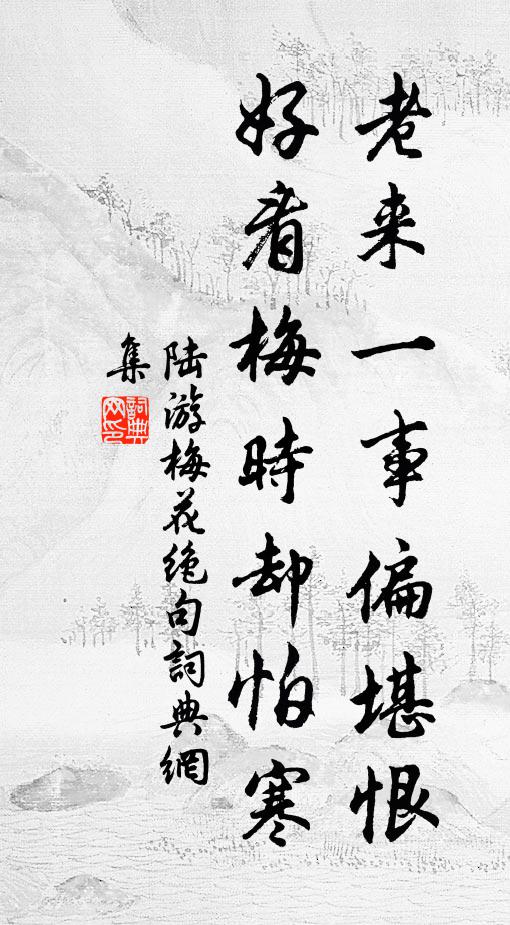 老来一事偏堪恨
好看梅時却怕寒
陆游梅花绝句詞典網
集
詞典网印